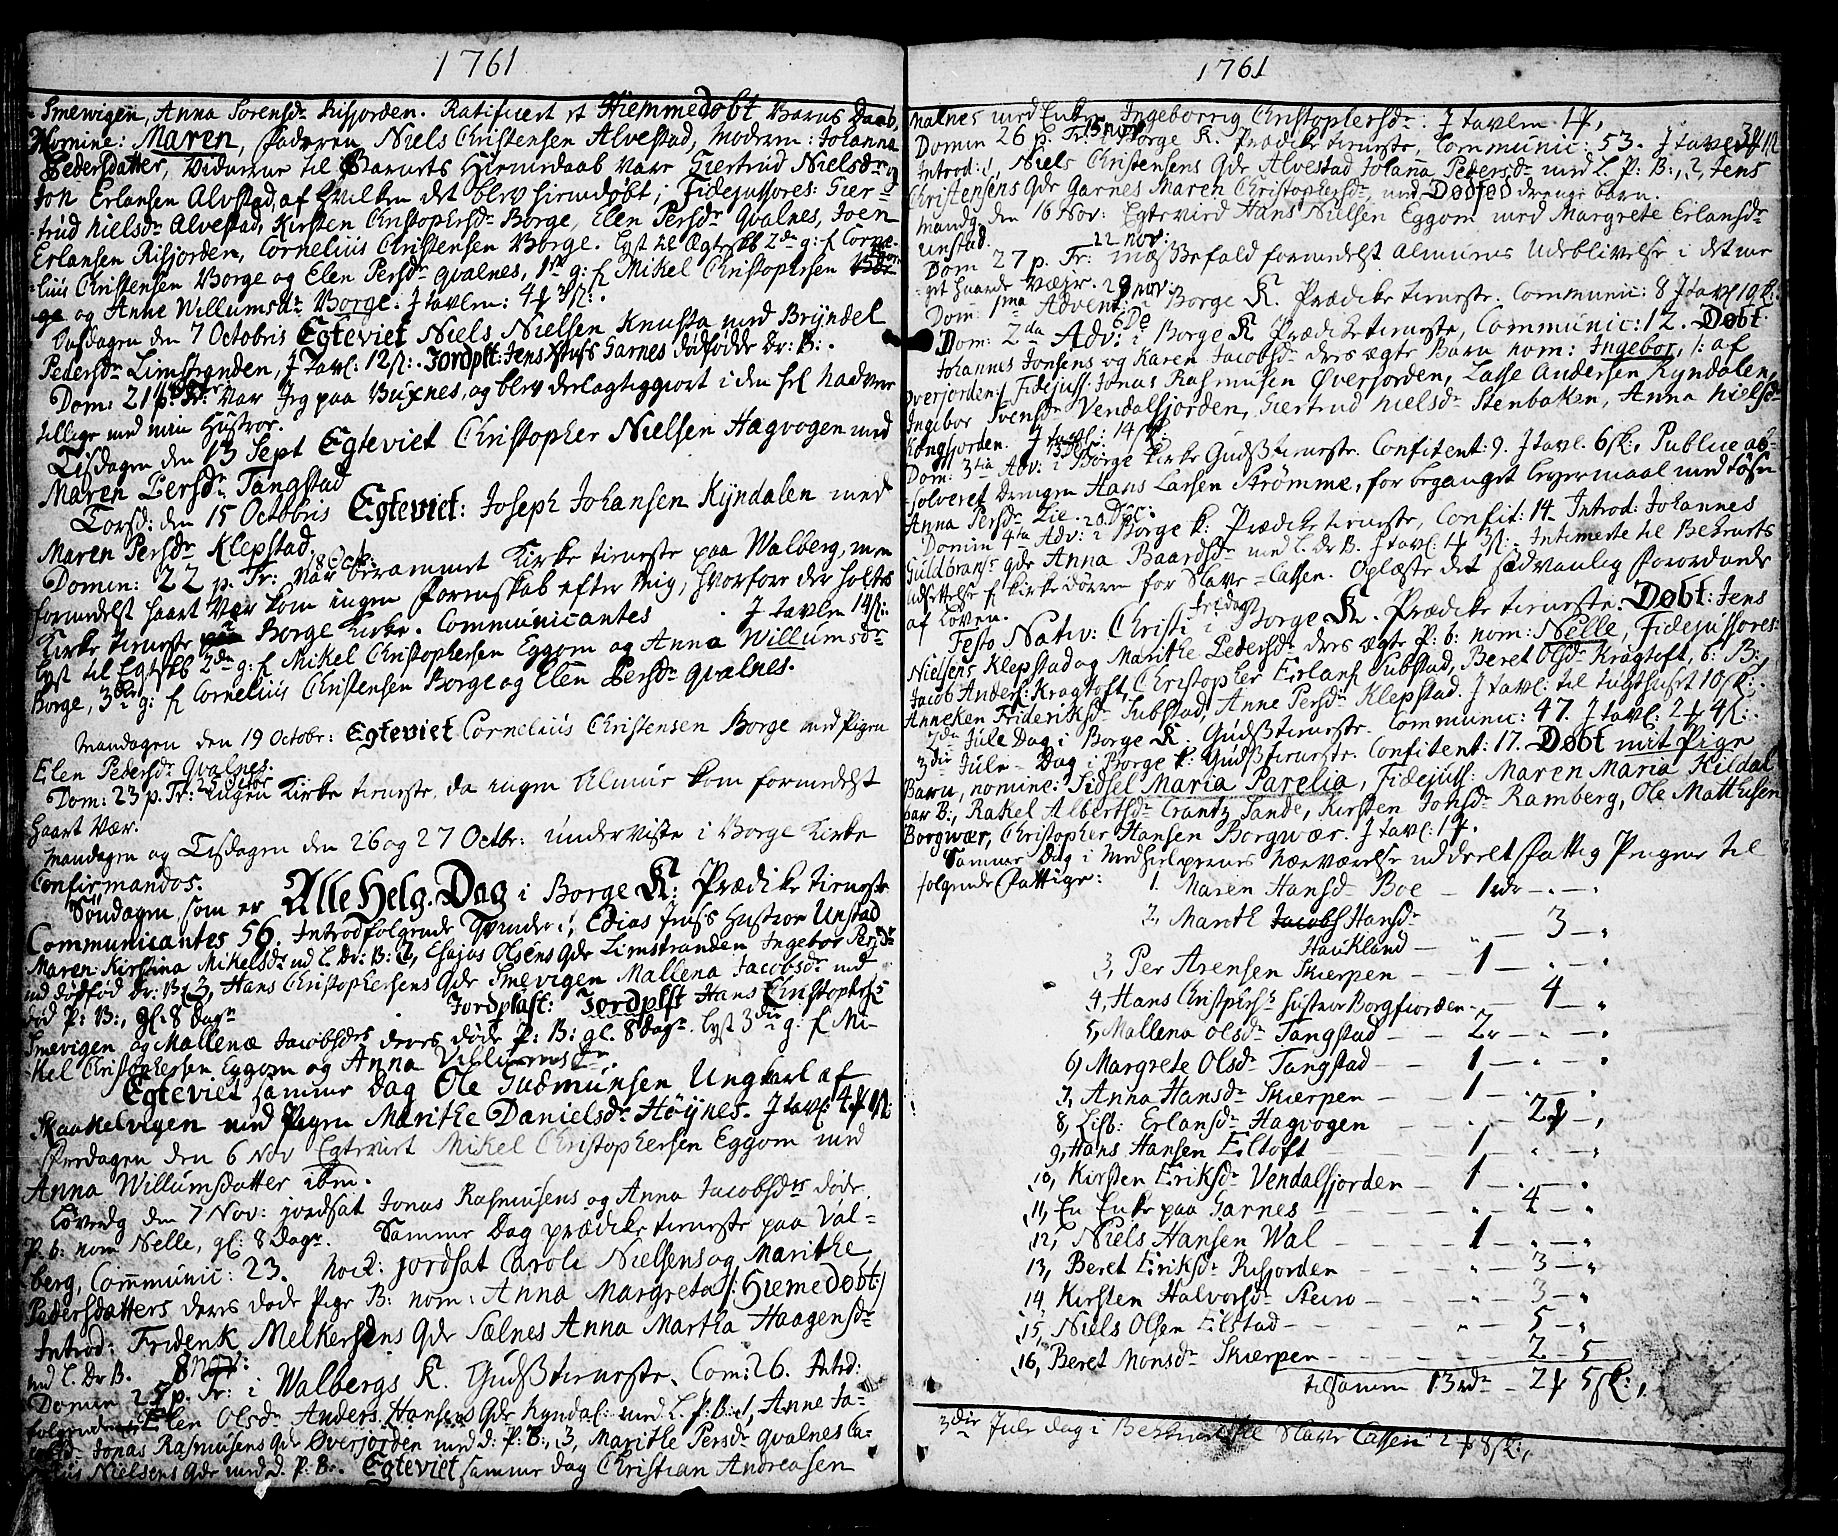 1761
Smevigen, Anna Sorensdr Risfjorden. Ratificert et Hiemmedøbt Barns Daab,
Nomine: Maren, Faderen Niels Christensen Alvestad, Moderen: Johanna
Pedersdatter, Vidnerne til Barnets Hiemedaab vare Giertrud Nielsdr og
Joh Erlansen Alvstad, af hvilken det blev hiemdøbt; Fidejussores: Gier-
trud Nielsdr Alvestad, Kirsten Christophersdr Borge, Elen Persdr Qvalnes, Joen
Erlansen Risfjorden, Cornelius Christensen Borge. Lyst til Ægteskb 2den g: f Corne-
lius Christensen Borge og Elen Persdr Qvalnes, 1ste g: f Mikel Christophersen
og Anne Willumsdr Borge. J tavlen: 4 3
Onsdagen den 7 Octobris Egteviet Niels Nielsen Knusta med Bryndel
Pedersdr Limstranden, J Tavl: 12. Jordpst: Jens Garnes dødfødde Dr: B:.
Dom: 21 p. Tr: var Jeg paa Buxnes, og blev delagtiggiort i den hel Nadvere
tillige med min Hustroe.
Tisdagen den 13 Sept Egteviet Christopher Nielsen Hægvogen med
Maren Persdr Tangstad
Torsd: den 15 Octobris Egteviet: Joseph Johansen Kyndalen med
Maren Persdr Klepstad.
Domin: 22 p. Tr: 18 Oct: var berammet Kirke tieneste paa Walberg, men
formedelst haart Vær kom ingen Formskab efter Mig, hvorfore der holtes
Kirke tieneste Borge Kirke. Communicantes J tavlen 14
Lyst til Egteskb 2den g: f Mikel Christophersen Eggom og Anna Willumsdr
Borge, 3die g: f Cornelius Christensen Borge og Elen Persdr Qvalnes.
Mandagen den 19 Octobr: Egteviet Cornelius Christensen Borge med Pigen
Elen Pedersdr Qvalnes.
Dom: 23 p. Tr: 25 Octobr ingen Kirke tieneste, da ingen Almue kom formedelst
haart Vær.
Mandagen og Tisdagen den 26 og 27 Octbr: underviste i Borge Kirke
Confirmandos.
Søndagen, som er Alle Helg. Dag i Borge K: Prædike tieneste
Communicantes 56. Introd folgende Qvinder: 1, Edias Hustroe Unstad
Maren Kirstina Mikelsdr ud L. Dr: B: 2, Esajas Olsens Qde Limstranden Ingebor Persdr
ud dødfød Dr: B: 3, Hans Christophersens Qde Smevigen Mallena Jacobsdr ud
død P: B:, gl: 8 Dagr Jordpaast: Jordpst Hans Christophers
Smevigen og Mallenæ Jacobsdrs deres døde P: B: gl. 8 dagr. Lyst 3die g: f Mi-
kel Christophersen Eggom og Anna Villumsdr.
Egteviet samme dag Ole Gudmunsen Ungkarl af
Skaakelvigen med Pigen Marithe Danielsdr Høynes. J tavl: 4
Fredagen den 6 Nov Egteviet Mikel Christophersen Eggom med
Anna Willumsdatter ibm.
Løverdg den 7 Nov: jordsat Jonas Rasmusens og Anna Jacobsdrs døde
P. b: nom Nelle, gl: 8 Dagr. Samme Dag prædike tieneste paa Val-
berg, Communic: 23. Nock: jordsat Caroli Nielsens og Marithe
Pedersdatters deres døde Pige B: nom: Anna Margreta /: Hiemedøbt :/
Introd: Friderik Melkersens Qde Sælnes Anna Martha Haagensdr
ud L. Dr B. 8 nov:
Domin 25 p. Tr: i Walbergs K. Gudsstieneste. Com: 26. Introd:
folgende Elen Olsdr Anders Hansens Qde Kyndal: med L. P: B: 1, Anne Ja-
Jonas Rasmusens Qde Øverfjorden med d: P: B:, 3, Marithe Persdr Qvalnes Ca-
Nielsens Qde med d. P: B:. Egteviet samme dag Christian Andreasen
1761
Malnes med Enken Ingeborrig Christophersdr. J tavlen 1,
Domin 26 p. Tr: 15 nov i Borge K. Prædike tieneste, Communic: 53. J tavl: 3
Introd: 1, Niels Christensens Qde Alvestad Johana Pedersdr med L. P: B:, 2, Jens
Christensens Qde Garnes Maren Christophersdr, med Dødfød drenge barn.
Mandg den 16 Nov: Egteviet Hans Nielsen Eggom med Margrete Erlansdr
Unstad.
Dom 27 p. Tr: 22 nov: Messefald formedelst Almuens Udeblivelse i det me
get haarde Vejr.
Dom: 1ma Advent: 29 nov: i Borge K. Prædike tieneste. Communic: 8 J tavl 19
Dom: 2da Adv: 6 De i Borge K Prædike tieneste, Communic: 12. Døbt:
Johannes Jonsens og Karen Jacobsdr deres ægte Barn nom: Ingebor, /: af
Overjorden :/ Fidejuss: Jonas Rasmusen Øverjorden, Lasse Andersen Kyndalen,
Ingebor Svensdr Vendalsjorden, Giertrud Nielsdr Stenbaken, Anna Nielsdr
Kongsjorden. J tavl: 14
Dom: 3tia Adv: i Borge Kirke Gudsstieneste. Confitent: 9. J tavl. 6 sk:, Publice ab-
solveret Drengen Hans Larsen Strømme, for begangen Leyermaal med Løsn
Anna Persdr Lie.
Domin 4ta Adv: 20 Dec: i Borge k: Prædike tieneste, Confit: 14. Introd: Johannes
Guldbrans Qde Anna Baardsdr med L. Dr B. J tavl: 1 3. Intimerte til Bekrants
udsettelse f kirke dørren for Slave-Cassen. Oplæste det sædvanlig Forordnede
af Loven.
Festo Nativ: Christi fredag i Borge K. Prædike tieneste. Døbt: Jens
Nielsens Klepstad og Marithe Pedersdr deres ægte P: b: nom: Nelle, Fidejussores:
Jacob Anders: Kragtoft, Christopher Erlans Substad, Beret Olsdr Kragtoft, 6: B:
Anneken Frideriksdr Substad, Anne Persdr Klepstad. J tavl: til Tugthuset 10
2den Jule Dag i Borge K. Gudsstieneste. Communic: 47. J tavl: 2 4
3die Jule-Dag i Borge k: Gudsstieneste. Confitent: 17. Døbt mit Pige
Barn, nomine: Sidsel Maria Parelia, Fidejuss: Maren Maria Kildal
bar B:, Rakel Albertsdr Crantz Sande, Kirsten Jonsdr Ramberg, Ole Mathisen
Borgvær, Christopher Hansen Borgvær. J tavl: 1.
Samme Dag i Medhielpernes Nærværelse uddeelt Fattig Pengene til
følgende Fattige:
1. Maren Hansdr Boe — 1 rdr — . —
2, Marith Jacobs Hansdr
Haukland — „ — 3 — „
3, Per Arensen Skierpen — 1 — . — „
4, Hans Christphers hustroe Borgfiorden — „ — 4 — „
5, Mallena Olsdr Tangstad — 2 — „ — „
6, Margrete Olsdr Tangstad — 1 — „ — „
7, Anna Hansdr Skierpen — 1 — „ — „
8, Lisb: Erlansdr Hagvogen — „ — 2 — „
9, Hans Hansen Eltoft — 1 — „ — „
10, Kirsten Eriksdr Vendalsjorden — 1 — „ — „
11, En Enke paa Garnes — „ — 4 — „
12, Niels Hansen Wal — 1 — „ — „
13, Beret Eriksdr Risjorden — „ — 3 — „
14 Kirsten Halvorsdr Steiro — „ — 3 — „
15, Niels Olsen Eilstad — „ — 5 — „
16, Beret Monsdr Skierpen — 2 — 5
tilsamm 13 rdr — 2 5 sk:,
3die Jule dag i Slave Cassen 2 8 sk:,